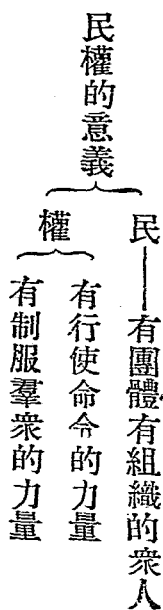 民權的意義
民
有團體有組織的衆人
權
有行使命令的力量
有制服羣衆的力量